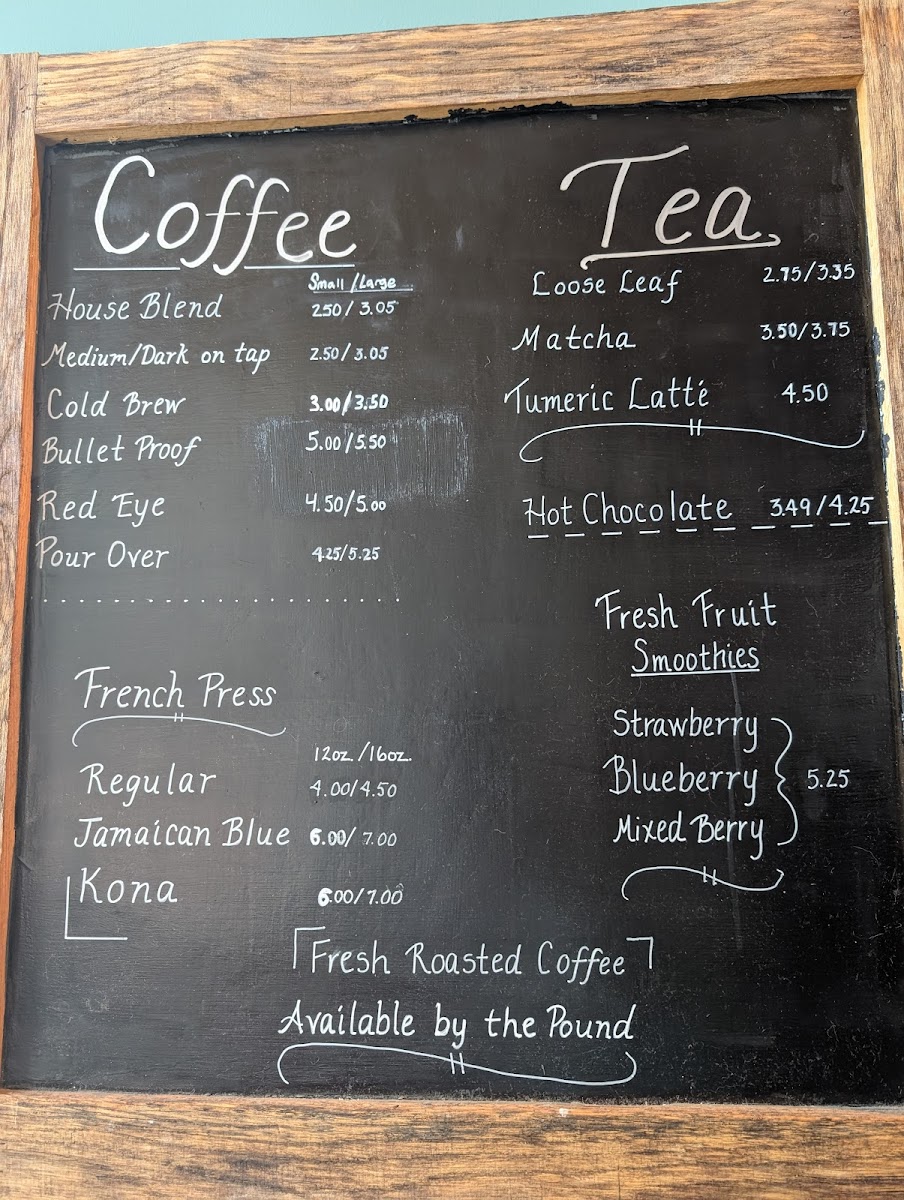 Coffee
Small/Large
House Blend 2.50/3.05
Medium/Dark on tap 2.50/3.05
Cold Brew 3.00/3.50
Bullet Proof 5.00/5.50
Red Eye 4.50/5.00
Pour Over 4.25/5.25
French Press
12oz./16oz.
Regular 4.00/4.50
Jamaican Blue 6.00/7.00
Kona 6.00/7.00
Tea
Loose Leaf 2.75/3.35
Matcha 3.50/3.75
Tumeric Latté 4.50
Hot Chocolate 3.49/4.25
Fresh Fruit
Smoothies
Strawberry
Blueberry 5.25
Mixed Berry
Fresh Roasted Coffee
Available by the Pound